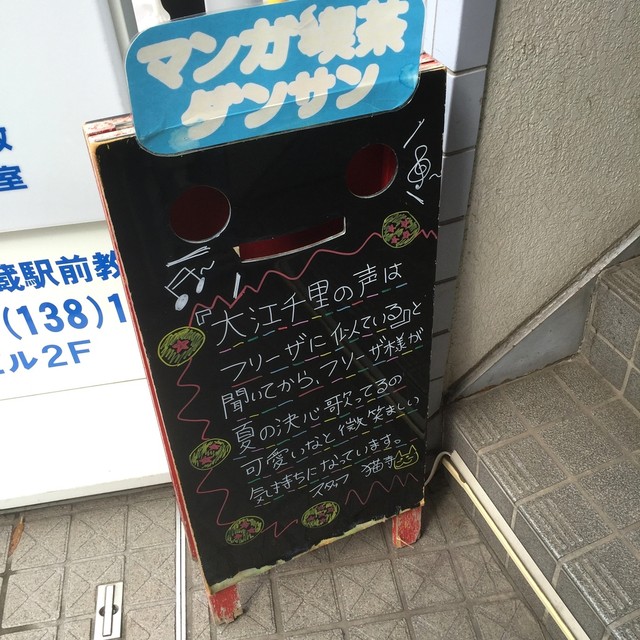 マンガ喫茶
ゲンサン
『大江千里の声は
フリーザに似ている』と
聞いてから、フリーザ様が
夏の決心歌ってるの
可愛いなと微笑ましい
気持ちになっています。
スタッフ 猫寺
室
蔵駅前教
(138)1
ル2F